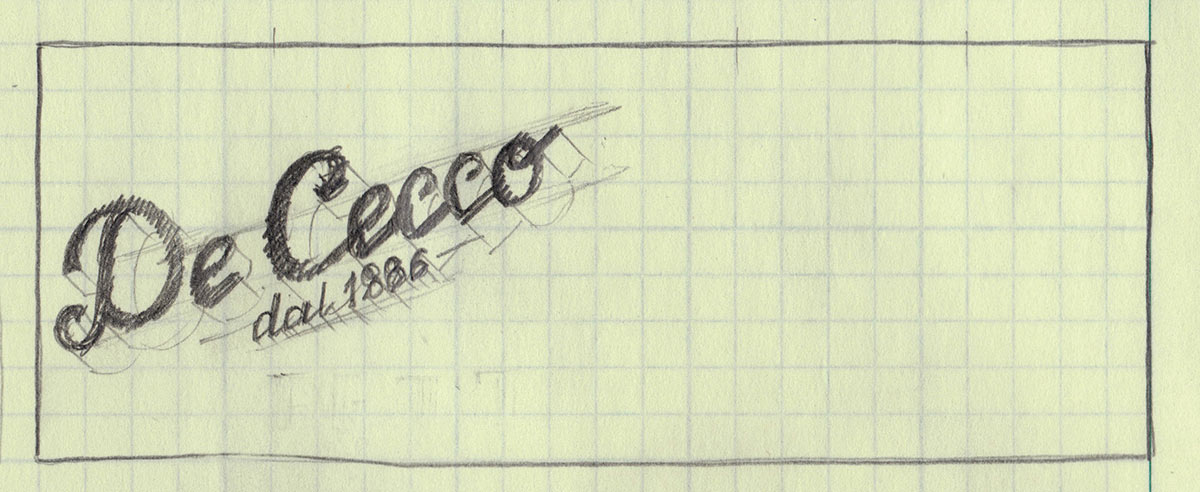 De Cecco
dal 1886